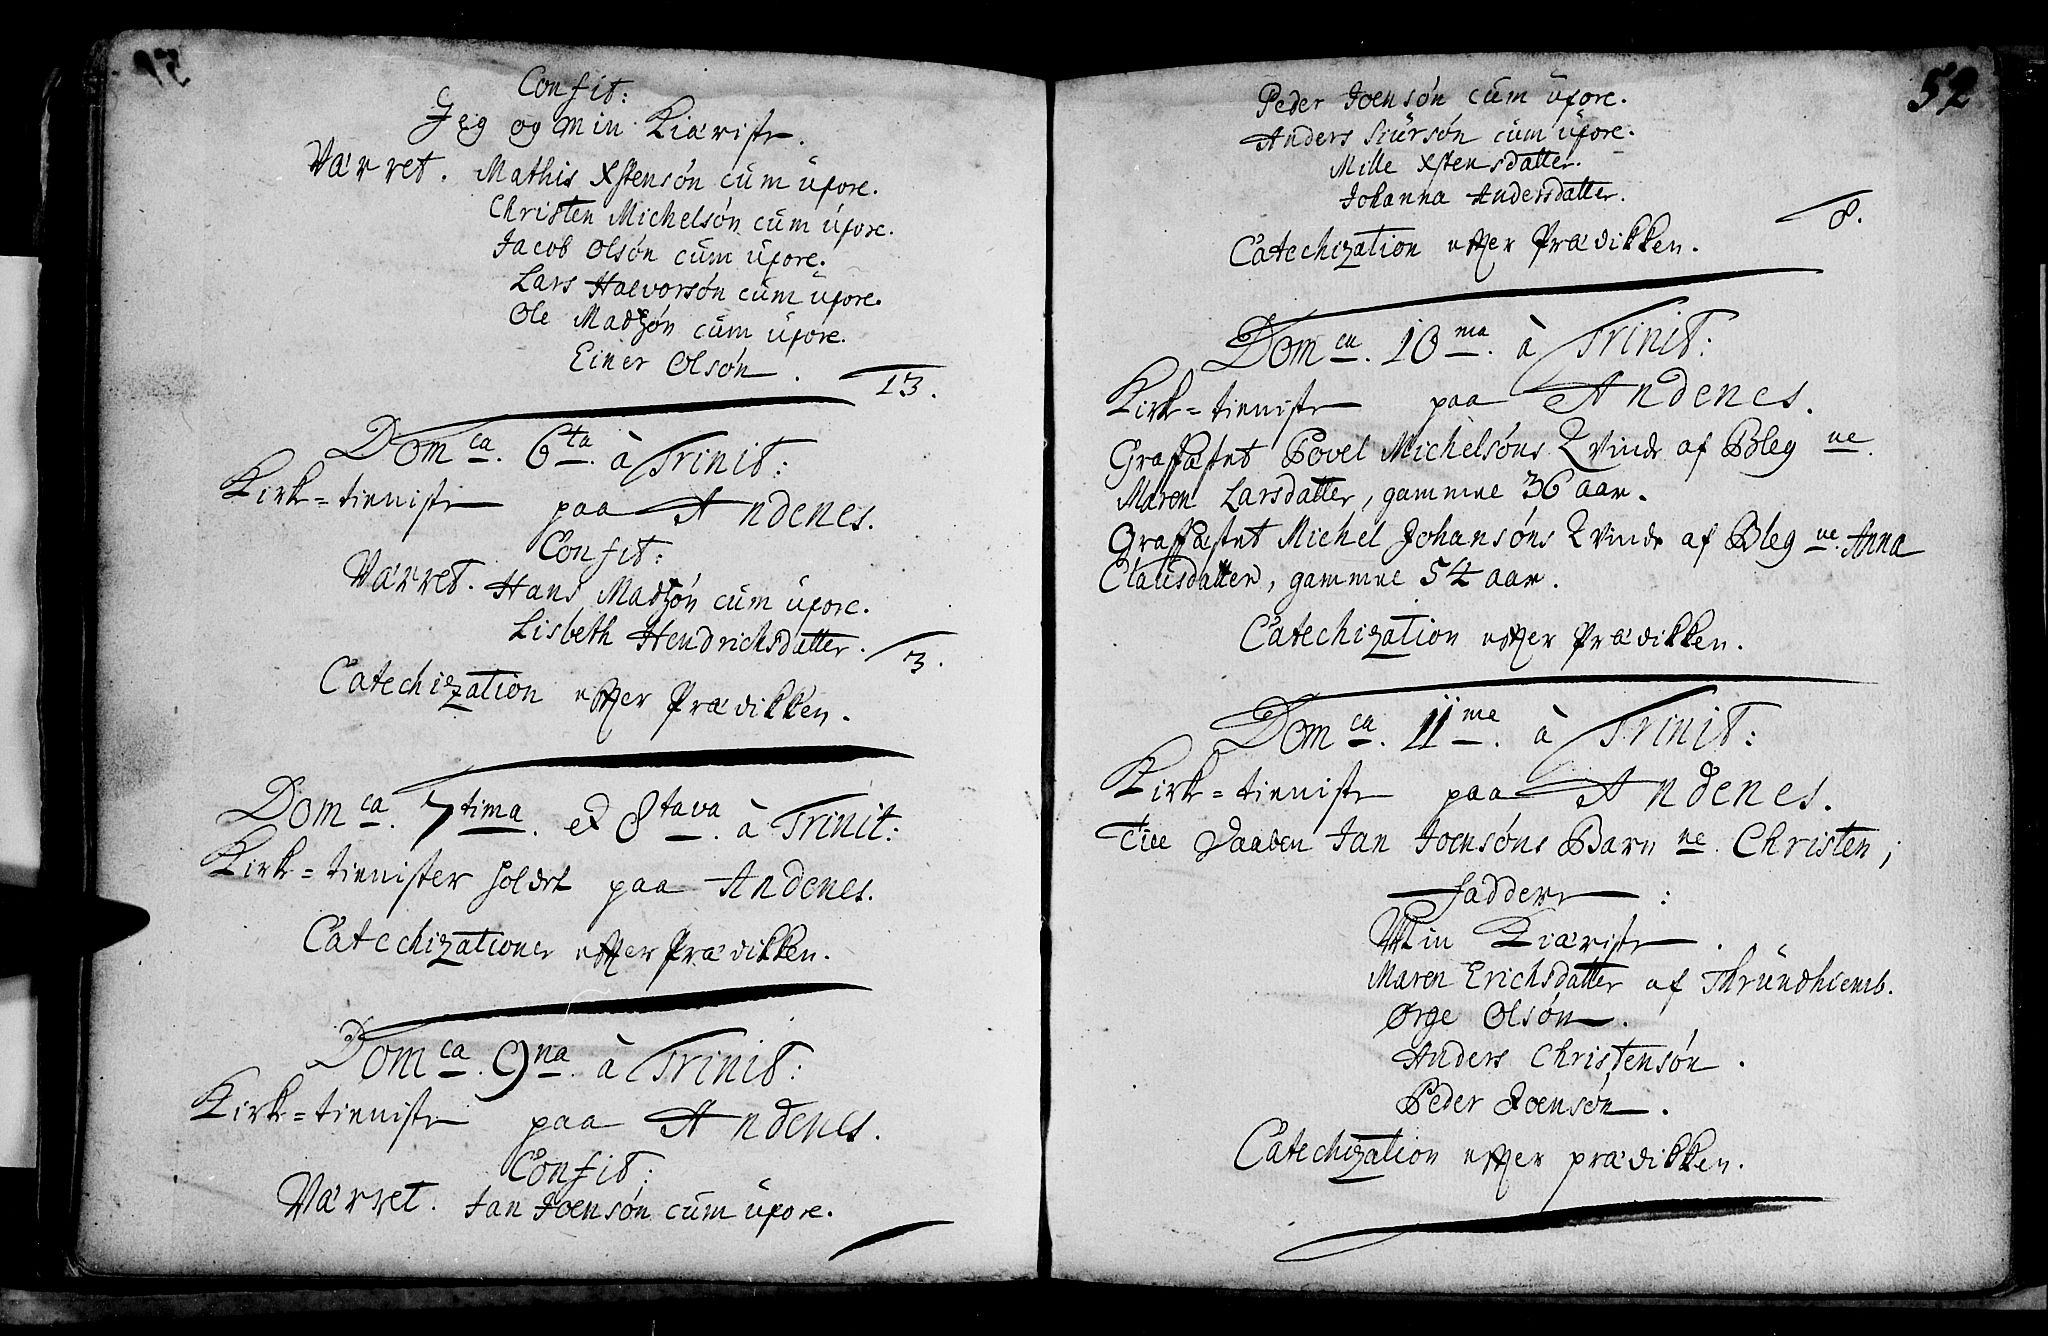 Confit:
Jeg og min Kiæriste.
Værret. Mathis Xstensøn cum uxore.
Christen Michelsøn cum uxore.
Jacob Olsøn cum uxore.
Lars Halvorsøn cum uxore.
Ole Madtzøn cum uxore.
Einer Olsøn. 13.
Dom ca. 6 ta. à Trinit:
Kirke=tieniste paa Andenes.
Confit:
Værret. Hans Madtzøn cum uxore.
Lisbeth Hendrichsdatter. 3.
Catechization effter Prædikken.
Dom ca. 7 tima. et 8 tava. à Trinit:
Kirke=tienister holdet paa Andenes.
Catechizationer effter Prædikken.
Dom ca. 9 na. à Trinit:
Kirke=tieniste paa Andenes.
Confit:
Værret. Jan Joensøn cum uxore.
52
Peder Joensøn cum uxore.
Anders Siursøn cum uxore.
Mille Xstensdatter.
Johanna Andersdatter.
8.
Catechization effter Prædikken.
Dom ca. 10 ma. à Trinit:
Kirke=tieniste paa Andenes.
Graffæstet Povel Michelsøns Qvinde af Bleg ne.
Maren Larsdatter, gammel 36 aar.
Graffæstet Michel Johansøns Qvinde af Bleg ne. Anna
Clausdatter, gammel 54 aar.
Catechization effter Prædikken.
Dom ca. 11 me. à Trinit:
Kirke=tieniste paa Andenes.
Till Daaben Jan Joensøns Barn ne. Christen;
Faddere:
Min Kiæriste.
Maren Erichsdatter af Thrundhiemb.
Ørge Olsøn.
Anders Christensøn.
Peder Joensøn.
Catechization effter prædikken.